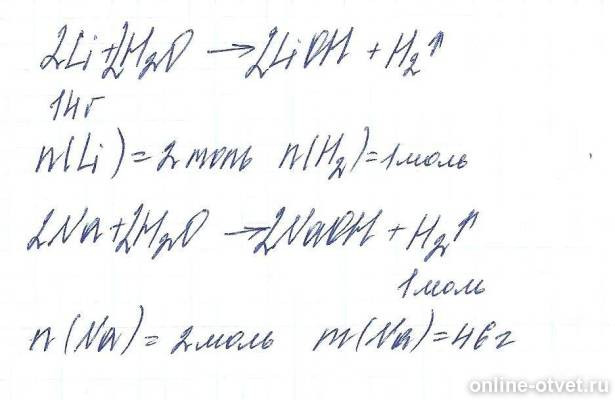 2Li+2H₂O → 2LiOH + H₂↑
14г
n(Li) = 2 моль n(H₂) = 1 моль
2Na+2H₂O → 2NaOH + H₂↑
1 моль
n(Na) = 2 моль m(Na) = 46 г
online-otvet.ru